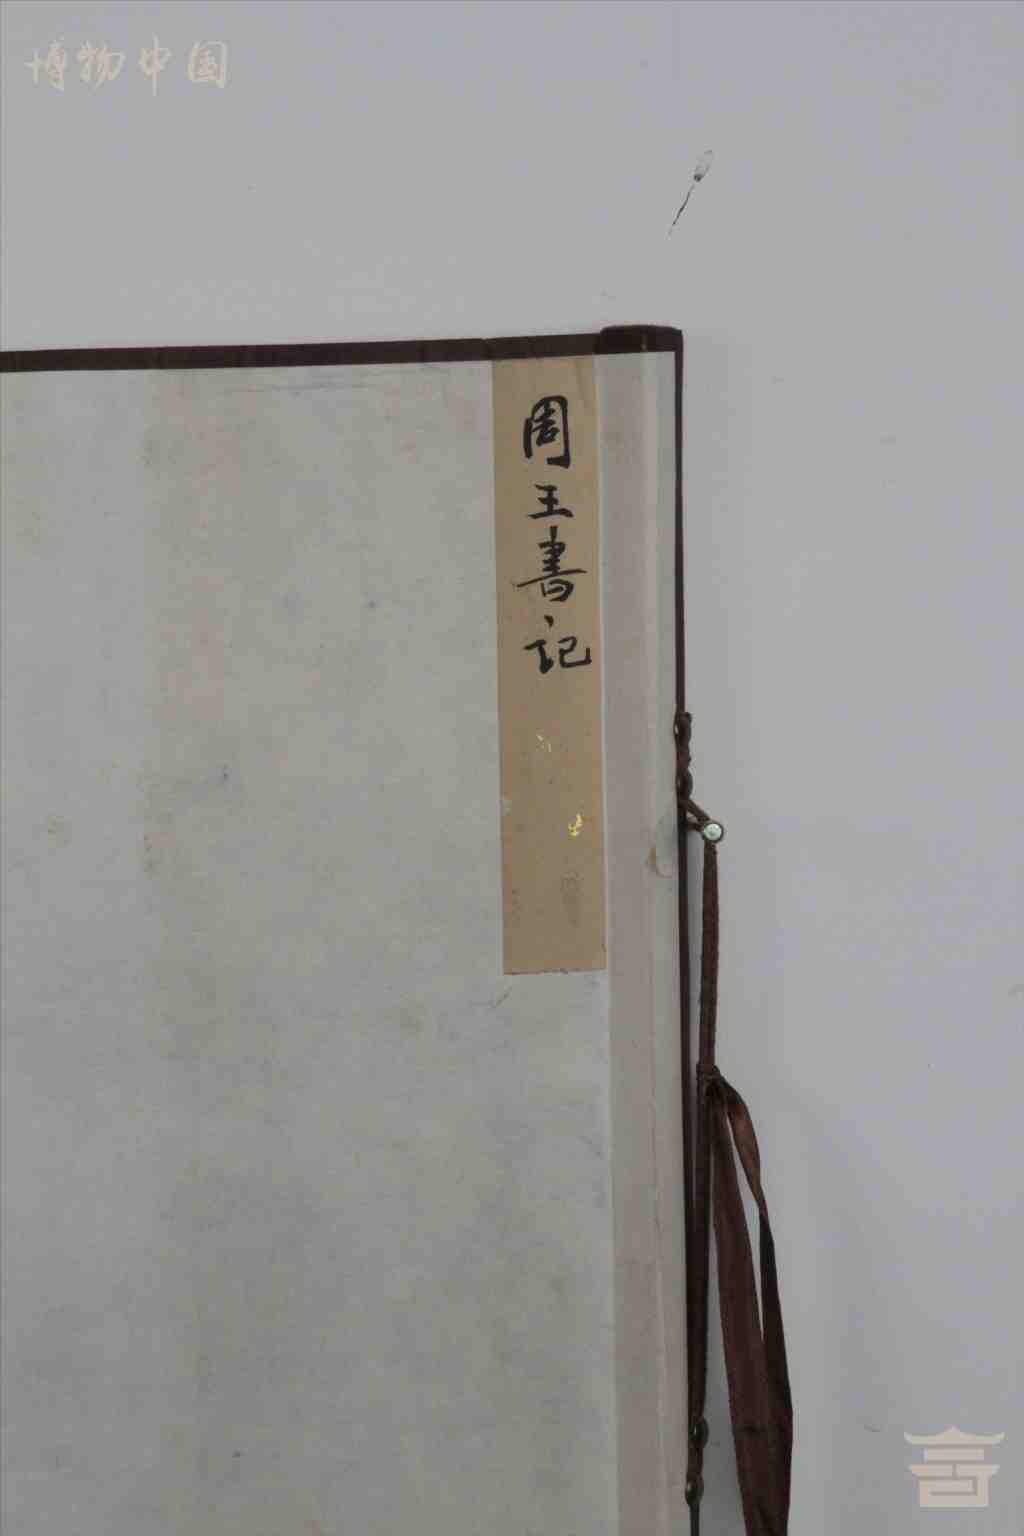 博物中国
周王書記